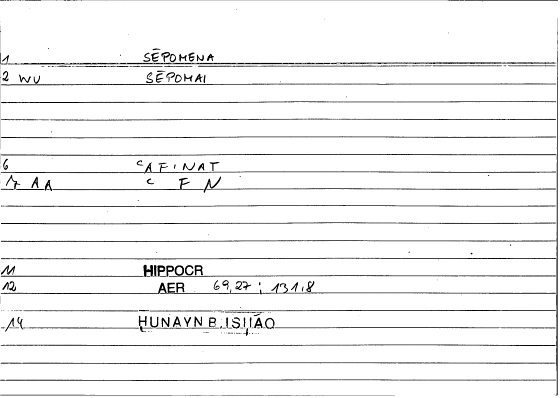 1 SĒPOMENA
2 WU SĒPOMAI
6 ᶜAFINAT
7 AA ᶜ F N
11 HIPPOCR
12 AER 69,27 ; 131,8
14 ḤUNAYN B. ISḤĀQ